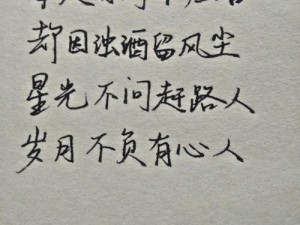 却因浊酒留风尘
星光不问赶路人
岁月不负有心人